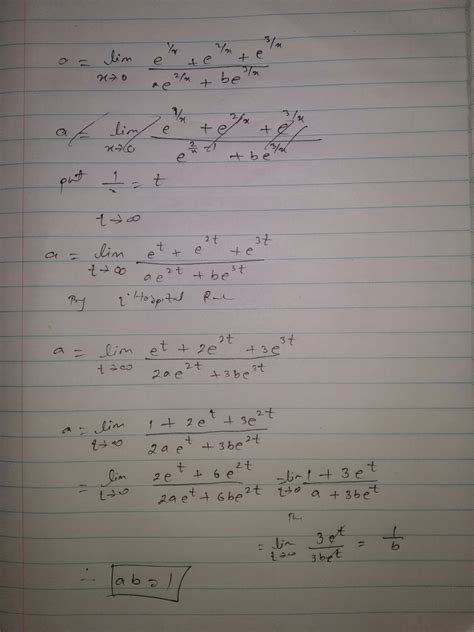 a = lim x→0 (e^{1/x} + e^{2/x} + e^{3/x}) / (ae^{2/x} + be^{3/x})
put 1/x = t
t→∞
a = lim t→∞ (e^t + e^{2t} + e^{3t}) / (ae^{2t} + be^{3t})
By L'Hospital Rule
a = lim t→∞ (e^t + 2e^{2t} + 3e^{3t}) / (2ae^{2t} + 3be^{3t})
a = lim t→∞ (1 + 2e^t + 3e^{2t}) / (2ae^t + 3be^{2t})
= lim t→∞ (2e^t + 6e^{2t}) / (2ae^t + 6be^{2t}) = lim t→∞ (1 + 3e^t) / (a + 3be^t)
= lim t→∞ 3e^t / 3be^t = 1/b
∴ ab = 1